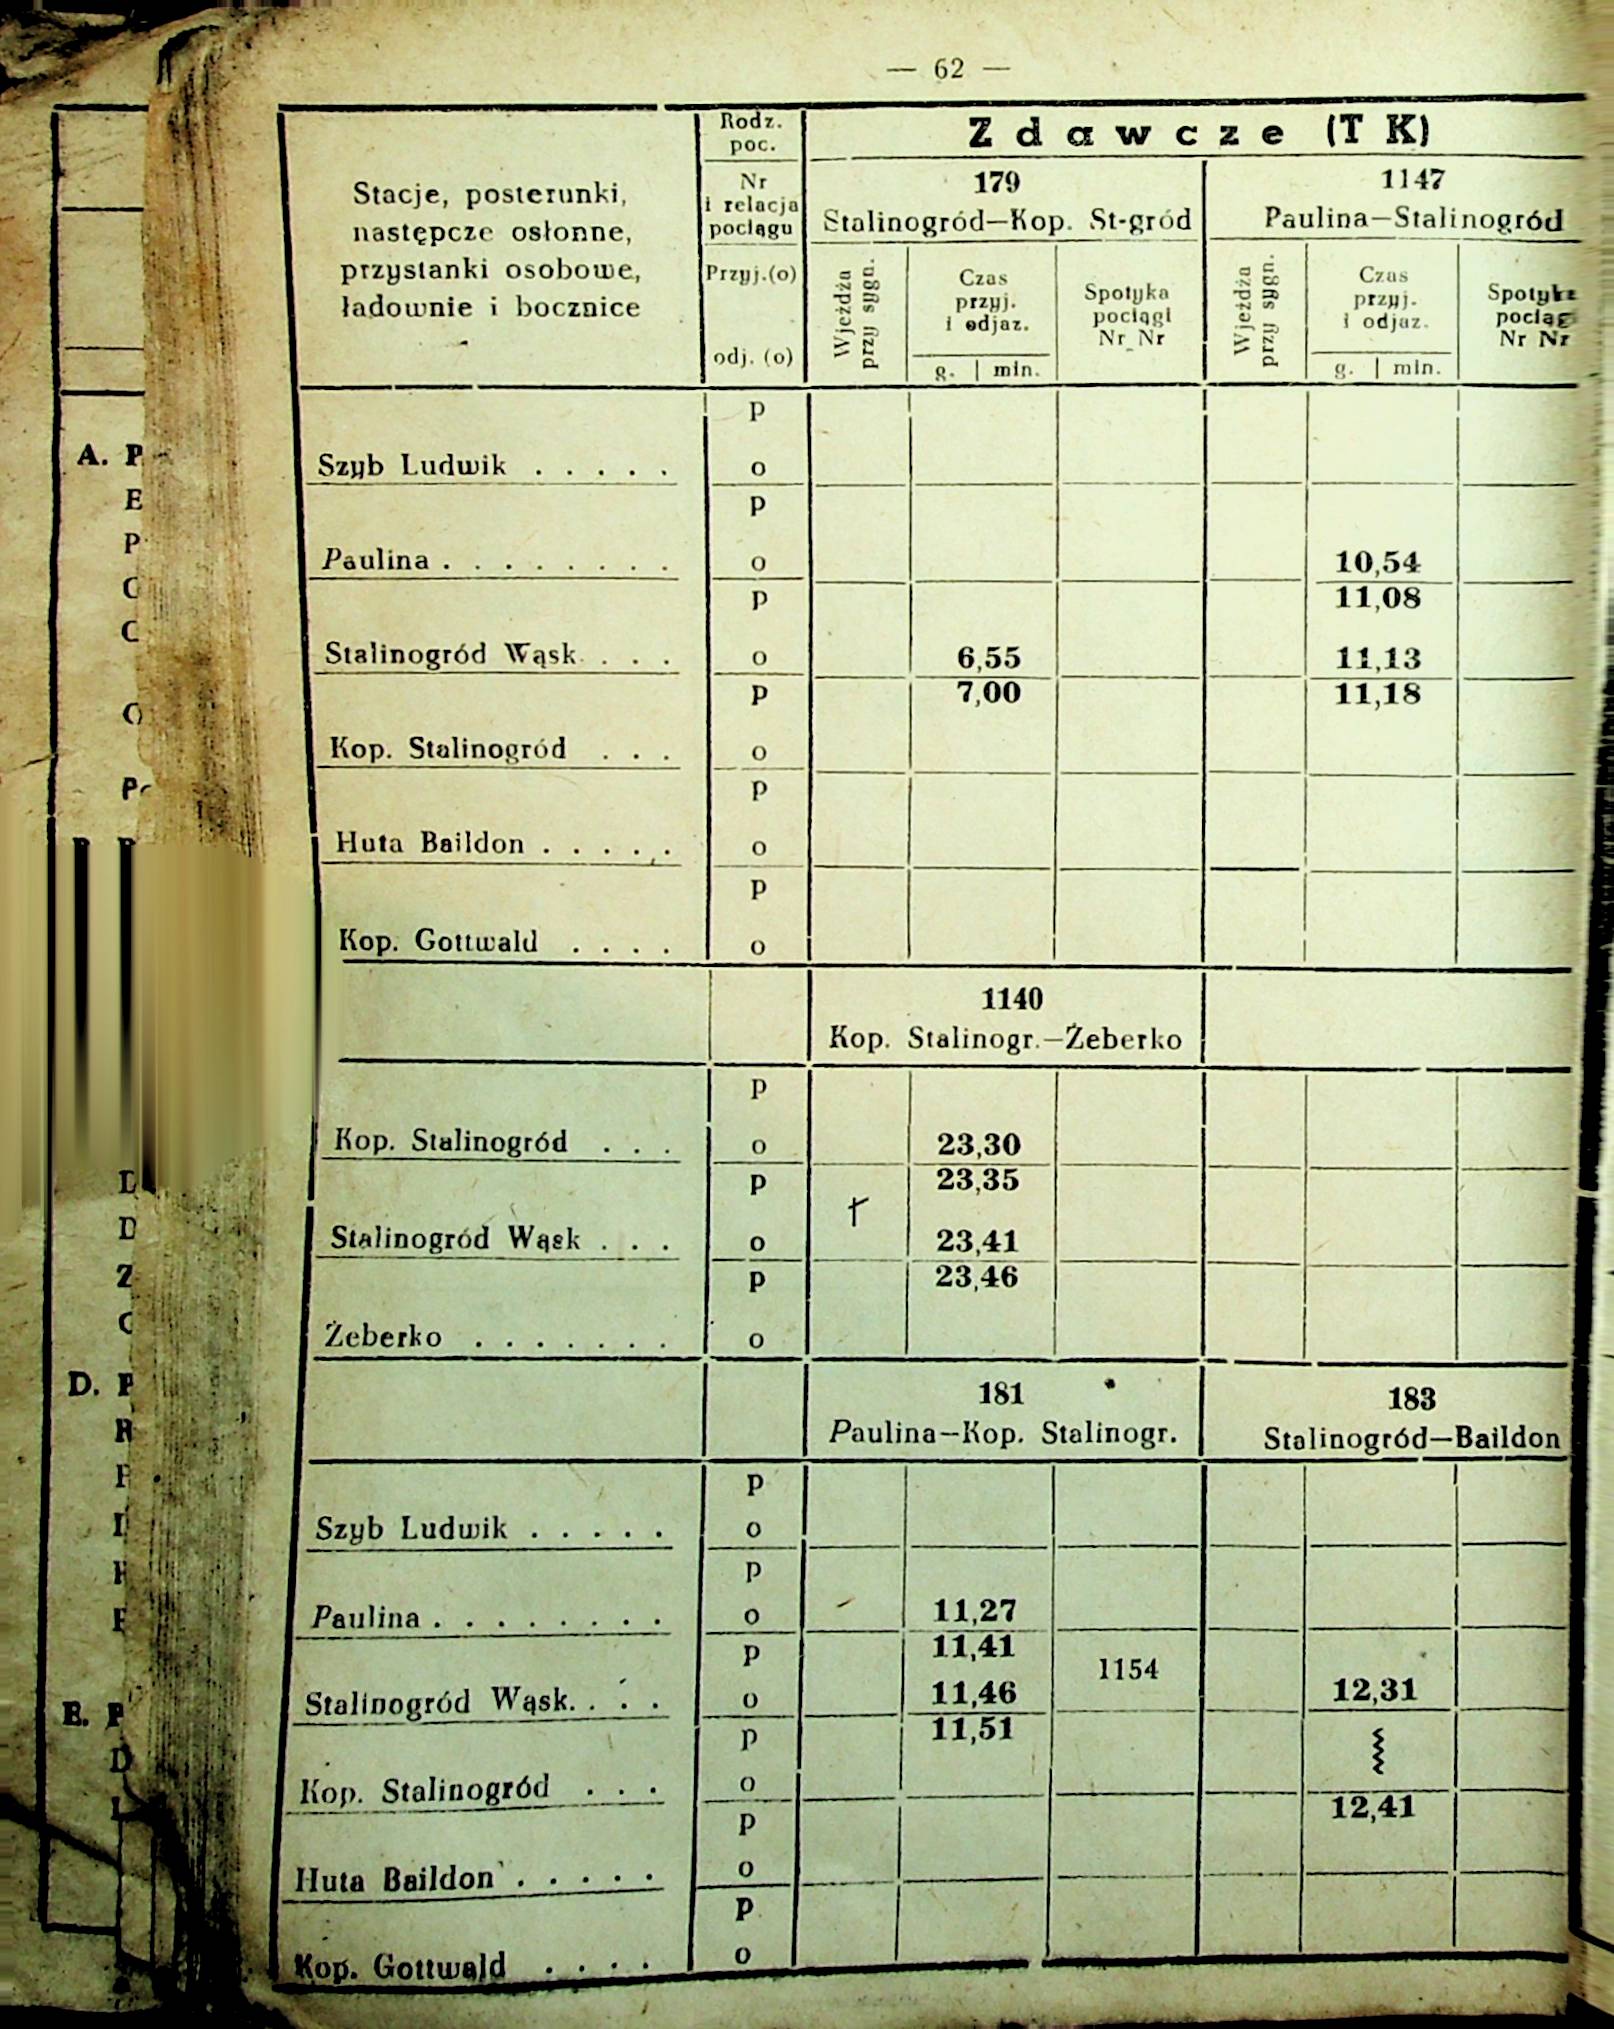 — 62 —
Rodz. poc.
Zdawcze (T K)
Stacje, posterunki,
następcze osłonne,
przystanki osobowe,
ładownie i bocznice
Nr
i relacja
pociągu
Przyj.(o)
odj. (o)
179
Stalinogród—Kop. St-gród
1147
Paulina—Stalinogród
Wjeżdża
przy sygn.
Czas
przyj.
i odjaz.
g. | min.
Spotyka
pociągi
Nr Nr
Wjeżdża
przy sygn.
Czas
przyj.
i odjaz.
g. | min.
Nr Nr
p
A.
Szyb Ludwik . . . . . o
p
Paulina . . . . . . . . o 10,54
p 11,08
Stalinogród Wąsk. . . . o 6,55 11,13
p 7,00 11,18
Kop. Stalinogród . . . o
p
Huta Baildon . . . . . o
p
Kop. Gottwald . . . . o
1140
Kop. Stalinogr.—Żeberko
p
Kop. Stalinogród . . . o 23,30
p 23,35
Stalinogród Wąsk . . . o 23,41
p 23,46
Żeberko . . . . . . . o
D.
181
Paulina—Kop. Stalinogr.
183
Stalinogród—Baildon
p
Szyb Ludwik . . . . . o
p
Paulina . . . . . . . . o 11,27
p 11,41 1154
E.
Stalinogród Wąsk. . . . o 11,46 12,31
p 11,51
Kop. Stalinogród . . . o
p 12,41
Huta Baildon . . . . . o
p
Kop. Gottwald . . . . o